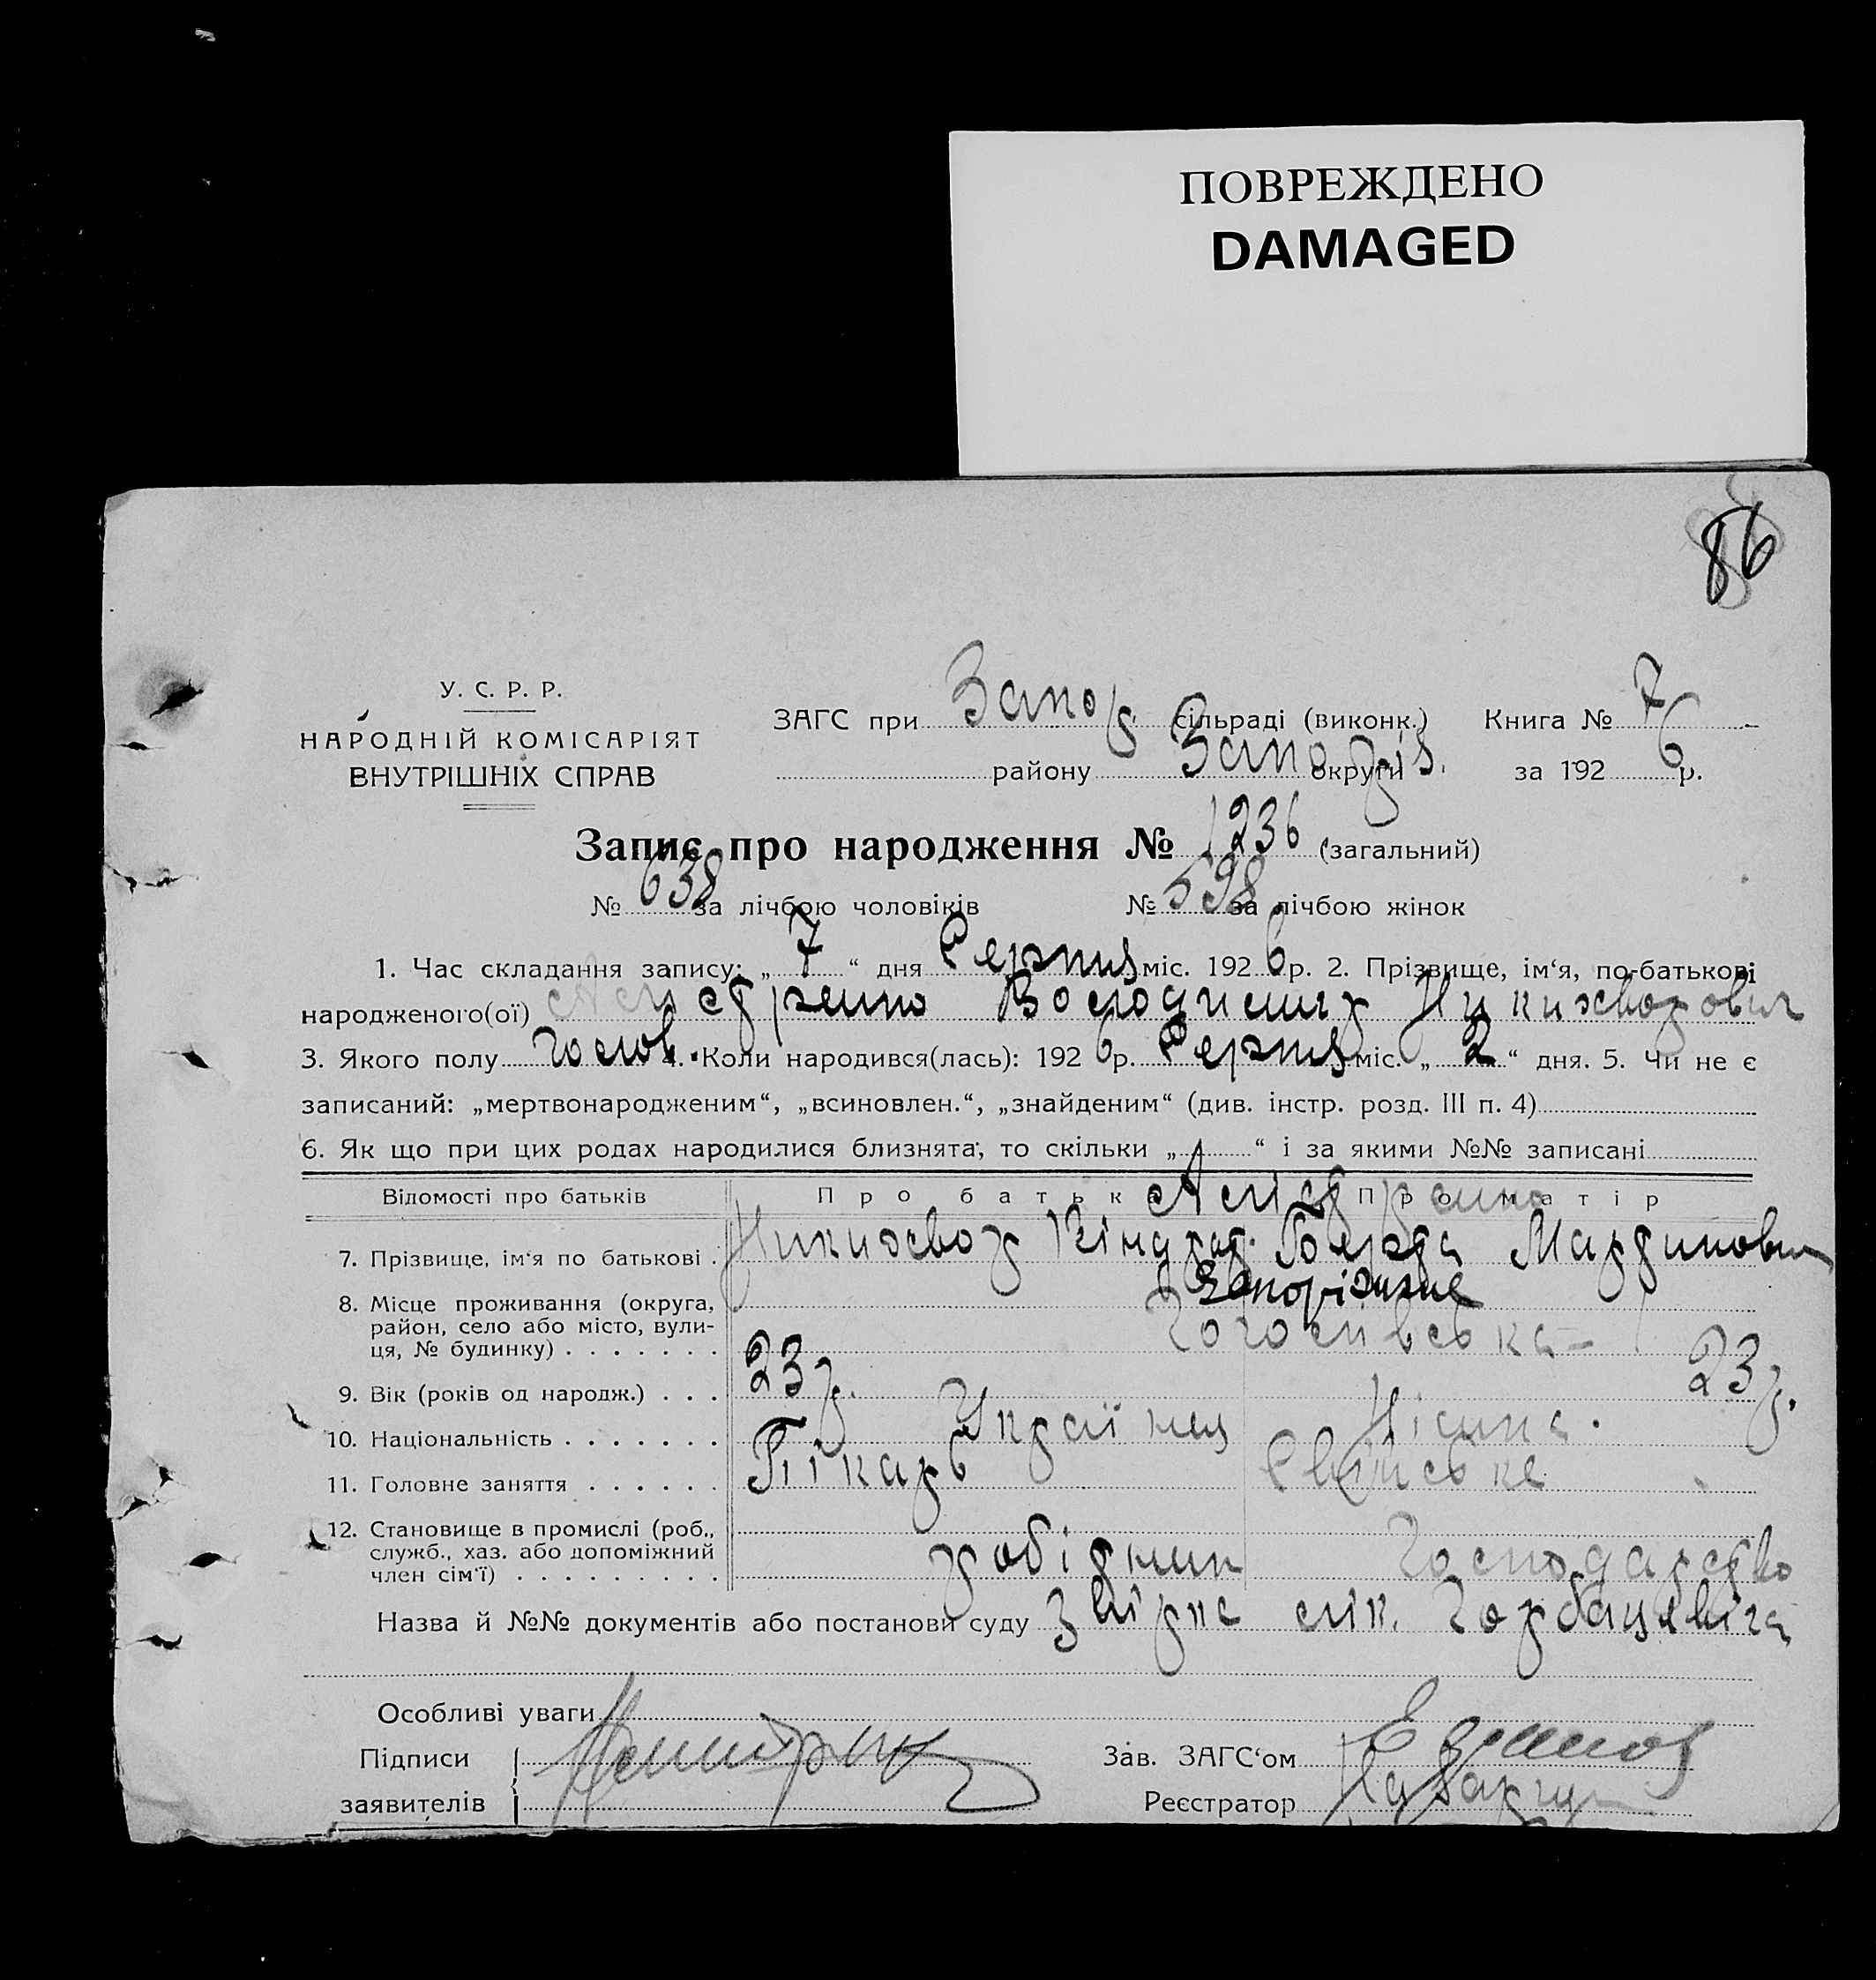 ПОВРЕЖДЕНО
DAMAGED
86
У. С. Р. Р.
НАРОДНІЙ КОМІСАРІЯТ
ВНУТРІШНІХ СПРАВ
ЗАГС при Запор. сільраді (виконк.) Книга № 7
району Запоріз. округи за 1926 р.
Запис про народження № 1236 (загальний)
№ 638 за лічбою чоловіків № 598 за лічбою жінок
1. Час складання запису: „7“ дня Серпня міс. 1926 р. 2. Прізвище, ім‘я, по-батькові
народженого(ої) Володимир
3. Якого полу голов. 4. Коли народився(лась): 1926 р. Серпня міс. „2“ дня. 5. Чи не є
записаний: „мертвонародженим“, „всиновлен.“, „знайденим“ (див. інстр. розд. III п. 4)
6. Як що при цих родах народилися близнята, то скільки „ “ і за якими №№ записані
Відомості про батьків Про батька Про матір
7. Прізвище, ім‘я по батькові . Кіндрат. Берта
8. Місце проживання (округа, район, село або місто, вулиця, № будинку) . . . . . . . Запоріжжя
9. Вік (років од народж.) . . . 23 р. 23 р.
10. Національність . . . . . . . Українец Німка.
11. Головне заняття . . . . . . Пікарь
12. Становище в промислі (роб., служб., хаз. або допоміжний член сім‘ї) . . . . . . . . . робітник Господарство
Назва й №№ документів або постанови суду
Особливі уваги
Підписи Зав. ЗАГС‘ом
заявителів Реєстратор